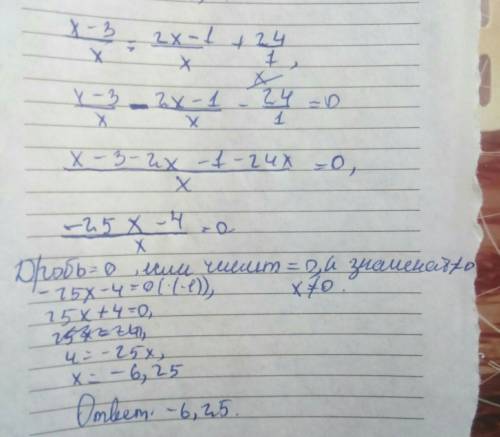 x-3/x = 2x-1/x + 24/1
x,
x-3/x - 2x-1/x - 24/1 = 0
x-3-2x-1-24x/x = 0,
-25x-4/x = 0
Дробь=0, или числит=0, а знаменат≠0
-25x-4=0(·(-1)), x≠0.
25x+4=0,
4=-25x,
x=-6,25
Ответ: -6,25.